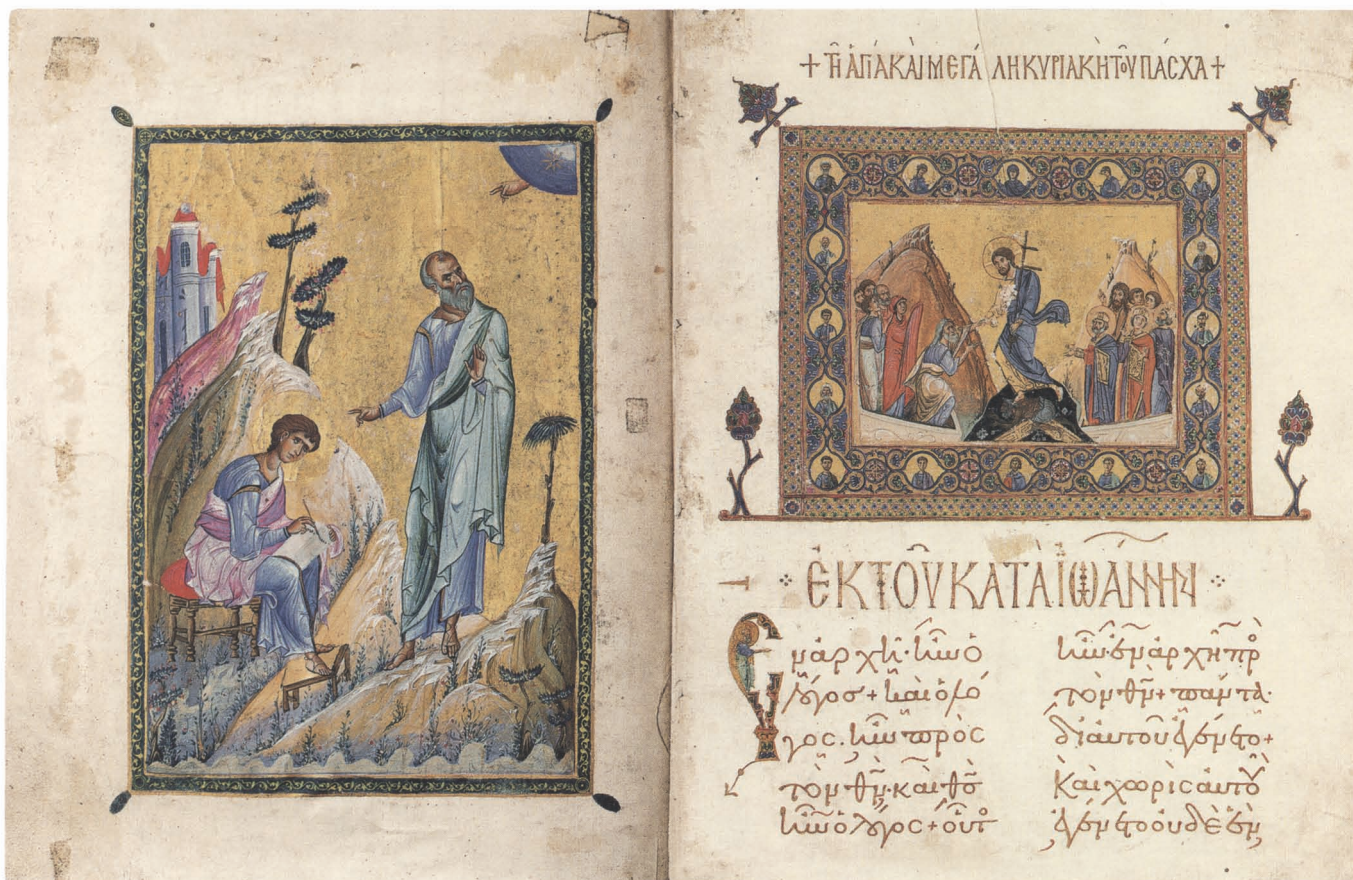 + Τῌ ἉΓΙΑ ΚΑΙ ΜΕΓΑΛΗ ΚΥΡΙΑΚΗ ΤΟΥ ΠΑΣΧΑ +
ἘΚ ΤΟΥ ΚΑΤΑ ἸΩΑΝΝΗΝ
Ἐν ἀρχῆ· ἦν ὁ
λόγος + καὶ ὁ λό
γος. ἦν πρὸς
τὸν θν· καὶ θς
ἦν ὁ λόγος + οὗτ
ἦν· ἐν ἀρχῆ πρ
τὸν θν + πάντα·
δι αυτοῦ ἐγένετο +
καὶ χωρὶς αυτοῦ
ἐγένετο οὐδὲ ἐν